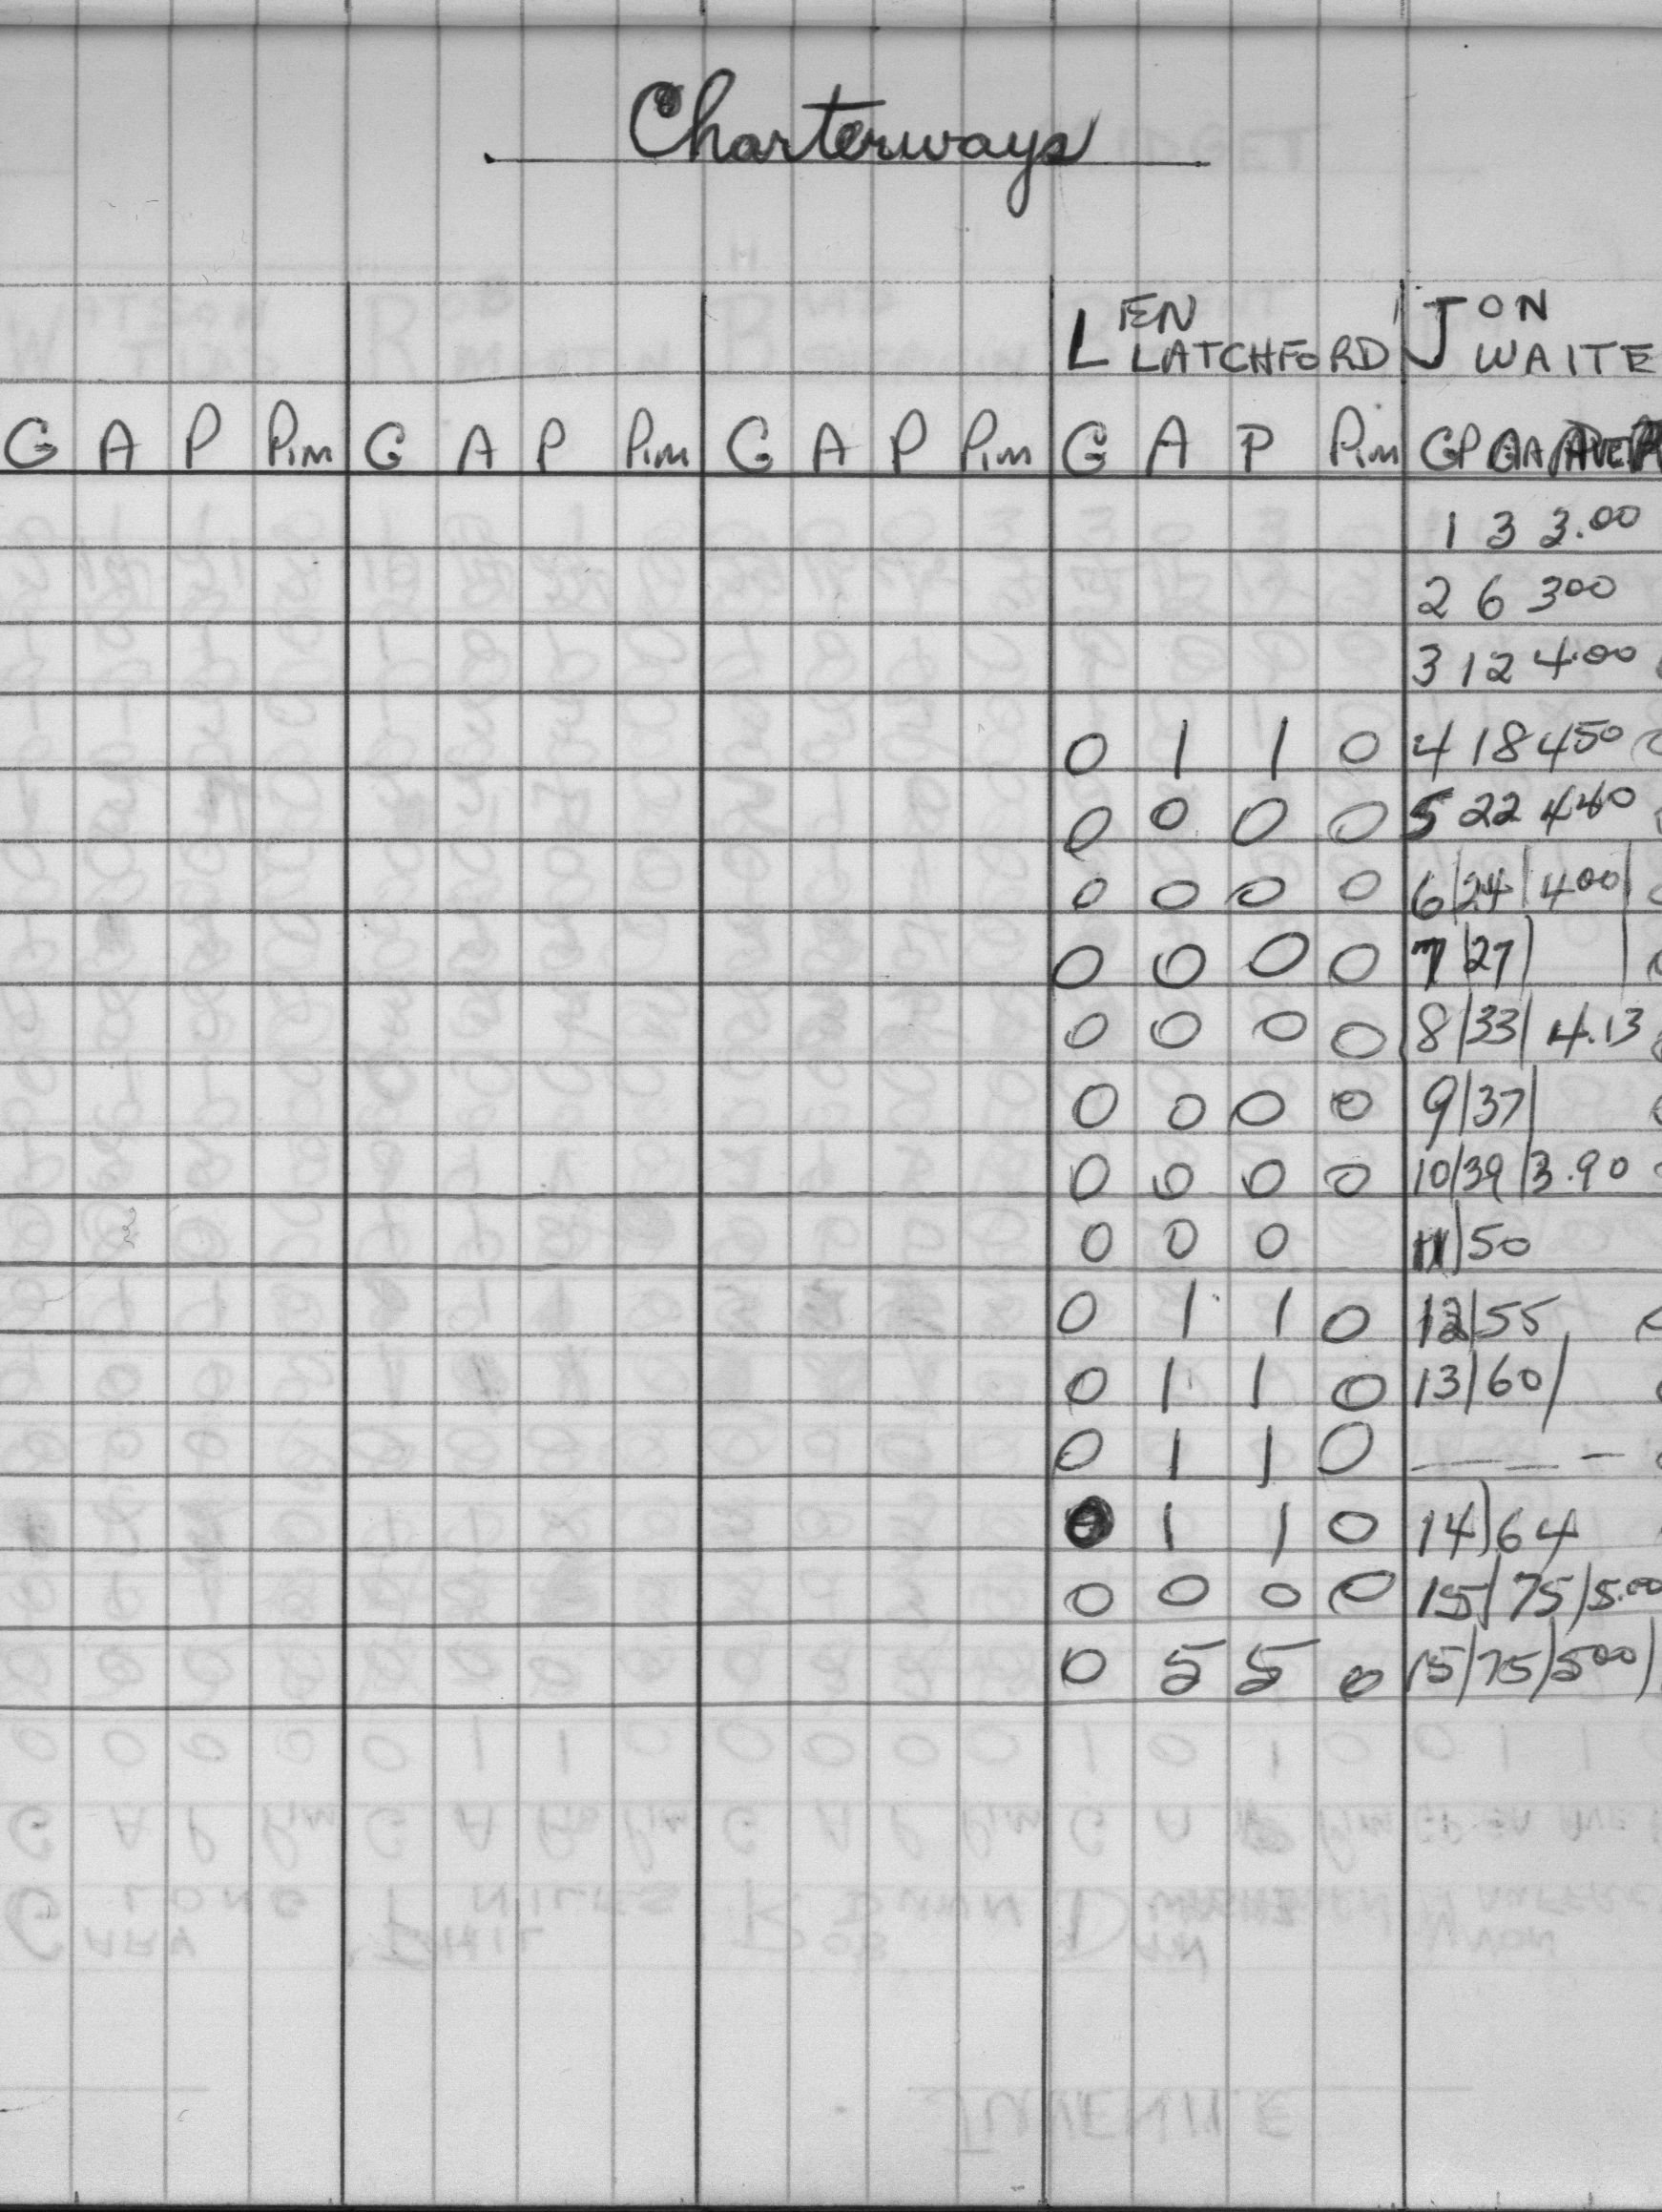 Charterways
LEN LATCHFORD JON WAITE
G A P Pim G A P Pim G A P Pim G A P Pim GP GA AVER
1 3 3.00
2 6 300
3 12 4.00
0 1 1 0 4 18 450
0 0 0 0 5 22 440
0 0 0 0 6/24/400/
0 0 0 0 7/27/
0 0 0 0 8/33/ 4.13
0 0 0 0 9/37/
0 0 0 0 10/39/3.90
0 0 0 11/50
0 1 1 0 12/55
0 1 1 0 13/60/
0 1 1 0 — — –
0 1 1 0 14/64
0 0 0 0 15/75/5.00
0 5 5 0 15/75/500/
JUVENILE